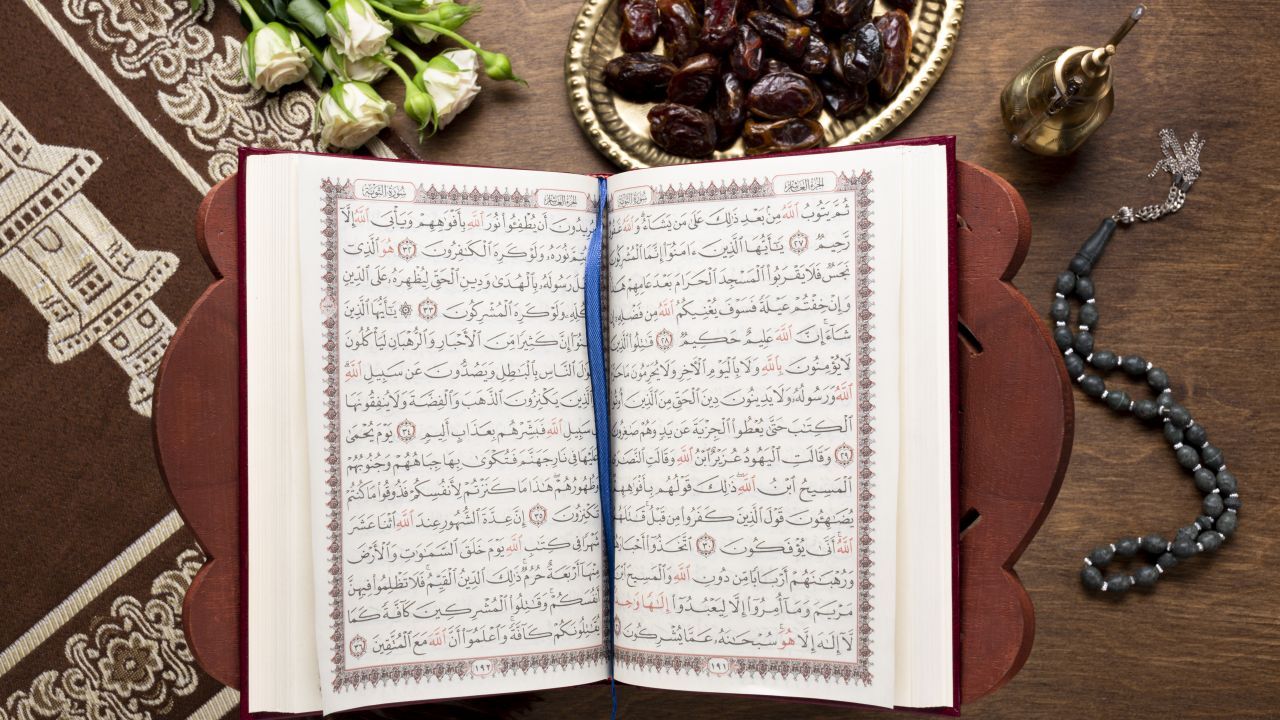 الجزء العاشر سورة التوبة
ثُمَّ يَتُوبُ ٱللَّهُ مِنۢ بَعْدِ ذَٰلِكَ عَلَىٰ مَن يَشَآءُ وَٱللَّهُ
رَّحِيمٌ ٢٧ يَٰٓأَيُّهَا ٱلَّذِينَ ءَامَنُوٓاْ إِنَّمَا
نَجَسٌ فَلَا يَقْرَبُواْ ٱلْمَسْجِدَ ٱلْحَرَامَ بَعْدَ عَامِهِمْ
وَإِنْ خِفْتُمْ عَيْلَةً فَسَوْفَ يُغْنِيكُمُ ٱللَّهُ مِن فَضْلِهِۦٓ
شَآءَ إِنَّ ٱللَّهَ عَلِيمٌ حَكِيمٌ ٢٨ قَٰتِلُواْ ٱلَّذِينَ
لَا يُؤْمِنُونَ بِٱللَّهِ وَلَا بِٱلْيَوْمِ ٱلْأٓخِرِ وَلَا يُحَرِّمُونَ مَا حَرَّمَ
ٱللَّهُ وَرَسُولُهُۥ وَلَا يَدِينُونَ دِينَ ٱلْحَقِّ مِنَ ٱلَّذِينَ
ٱلْكِتَٰبَ حَتَّىٰ يُعْطُواْ ٱلْجِزْيَةَ عَن يَدٍ وَهُمْ صَٰغِرُونَ
٢٩ وَقَالَتِ ٱلْيَهُودُ عُزَيْرٌ ٱبْنُ ٱللَّهِ وَقَالَتِ ٱلنَّصَٰرَى
ٱلْمَسِيحُ ٱبْنُ ٱللَّهِ ذَٰلِكَ قَوْلُهُم بِأَفْوَٰهِهِمْ
يُضَٰهِـُٔونَ قَوْلَ ٱلَّذِينَ كَفَرُواْ مِن قَبْلُ قَٰتَلَهُمُ
ٱللَّهُ أَنَّىٰ يُؤْفَكُونَ ٣٠ ٱتَّخَذُوٓاْ أَحْبَارَهُمْ
وَرُهْبَٰنَهُمْ أَرْبَابًا مِّن دُونِ ٱللَّهِ وَٱلْمَسِيحَ ٱبْنَ
مَرْيَمَ وَمَآ أُمِرُوٓاْ إِلَّا لِيَعْبُدُوٓاْ إِلَٰهًا وَٰحِدًا
لَّآ إِلَٰهَ إِلَّا هُوَ سُبْحَٰنَهُۥ عَمَّا يُشْرِكُونَ
١٩١
الجزء العاشر سورة التوبة
يُرِيدُونَ أَن يُطْفِـُٔواْ نُورَ ٱللَّهِ بِأَفْوَٰهِهِمْ وَيَأْبَى ٱللَّهُ إِلَّآ
يُتِمَّ نُورَهُۥ وَلَوْ كَرِهَ ٱلْكَٰفِرُونَ ٣٢ هُوَ ٱلَّذِىٓ
رَسُولَهُۥ بِٱلْهُدَىٰ وَدِينِ ٱلْحَقِّ لِيُظْهِرَهُۥ عَلَى ٱلدِّينِ
كُلِّهِۦ وَلَوْ كَرِهَ ٱلْمُشْرِكُونَ ٣٣ ۞ يَٰٓأَيُّهَا ٱلَّذِينَ
ءَامَنُوٓاْ إِنَّ كَثِيرًا مِّنَ ٱلْأَحْبَارِ وَٱلرُّهْبَانِ لَيَأْكُلُونَ
أَمْوَٰلَ ٱلنَّاسِ بِٱلْبَٰطِلِ وَيَصُدُّونَ عَن سَبِيلِ ٱللَّهِ
وَٱلَّذِينَ يَكْنِزُونَ ٱلذَّهَبَ وَٱلْفِضَّةَ وَلَا يُنفِقُونَهَا
سَبِيلِ ٱللَّهِ فَبَشِّرْهُم بِعَذَابٍ أَلِيمٍ ٣٤ يَوْمَ يُحْمَىٰ
عَلَيْهَا فِى نَارِ جَهَنَّمَ فَتُكْوَىٰ بِهَا جِبَاهُهُمْ وَجُنُوبُهُمْ
وَظُهُورُهُمْ هَٰذَا مَا كَنَزْتُمْ لِأَنفُسِكُمْ فَذُوقُواْ مَا كُنتُمْ
تَكْنِزُونَ ٣٥ إِنَّ عِدَّةَ ٱلشُّهُورِ عِندَ ٱللَّهِ ٱثْنَا عَشَرَ
شَهْرًا فِى كِتَٰبِ ٱللَّهِ يَوْمَ خَلَقَ ٱلسَّمَٰوَٰتِ وَٱلْأَرْضَ
مِنْهَآ أَرْبَعَةٌ حُرُمٌ ذَٰلِكَ ٱلدِّينُ ٱلْقَيِّمُ فَلَا تَظْلِمُواْ فِيهِنَّ
أَنفُسَكُمْ وَقَٰتِلُواْ ٱلْمُشْرِكِينَ كَآفَّةً كَمَا
يُقَٰتِلُونَكُمْ كَآفَّةً وَٱعْلَمُوٓاْ أَنَّ ٱللَّهَ مَعَ ٱلْمُتَّقِينَ ٣٦
١٩٢